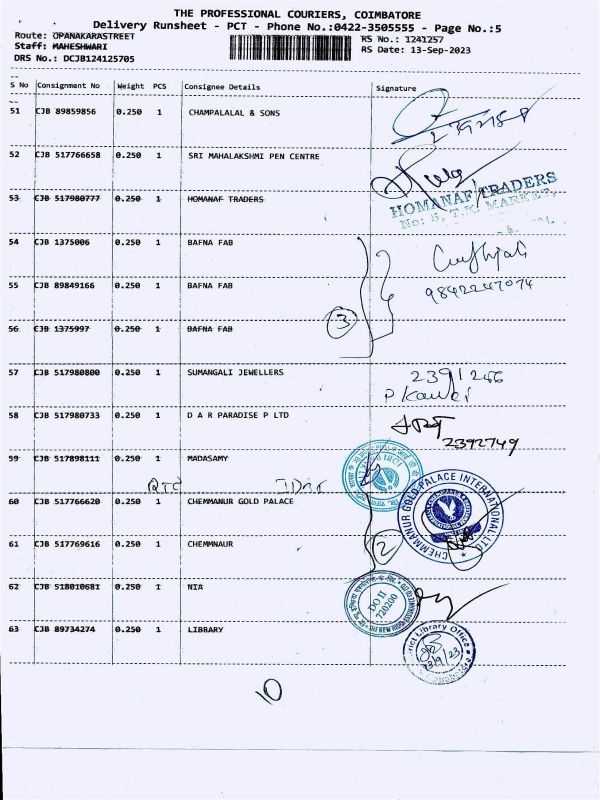 THE PROFESSIONAL COURIERS, COIMBATORE
Delivery Runsheet - PCT - Phone No.:0422-3505555 - Page No.:5
Route: OPANAKARASTREET
RS No.: 1241257
Staff: MAHESHWARI
RS Date: 13-Sep-2023
DRS No.: DCJB124125705
S No Consignment No Weight PCS Consignee Details Signature
51 CJB 89859856 0.250 1 CHAMPALALAL & SONS
52 CJB 517766658 0.250 1 SRI MAHALAKSHMI PEN CENTRE
53 CJB 517980777 0.250 1 HOMANAF TRADERS
HOMANAF TRADERS
No: 5, T.K. MARKET,
54 CJB 1375006 0.250 1 BAFNA FAB
55 CJB 89849166 0.250 1 BAFNA FAB
9842247074
56 CJB 1375997 0.250 1 BAFNA FAB
3
57 CJB 517980800 0.250 1 SUMANGALI JEWELLERS
2391246
58 CJB 517980733 0.250 1 D A R PARADISE P LTD
2392749
59 CJB 517898111 0.250 1 MADASAMY
60 CJB 517766620 0.250 1 CHEMMANUR GOLD PALACE
CHEMMANUR GOLD PALACE INTERNATIONAL LTD
61 CJB 517769616 0.250 1 CHEMMNAUR
2
62 CJB 518010681 0.250 1 NIA
DO II
720200
63 CJB 89734274 0.250 1 LIBRARY
Library Office
13/9/23
10